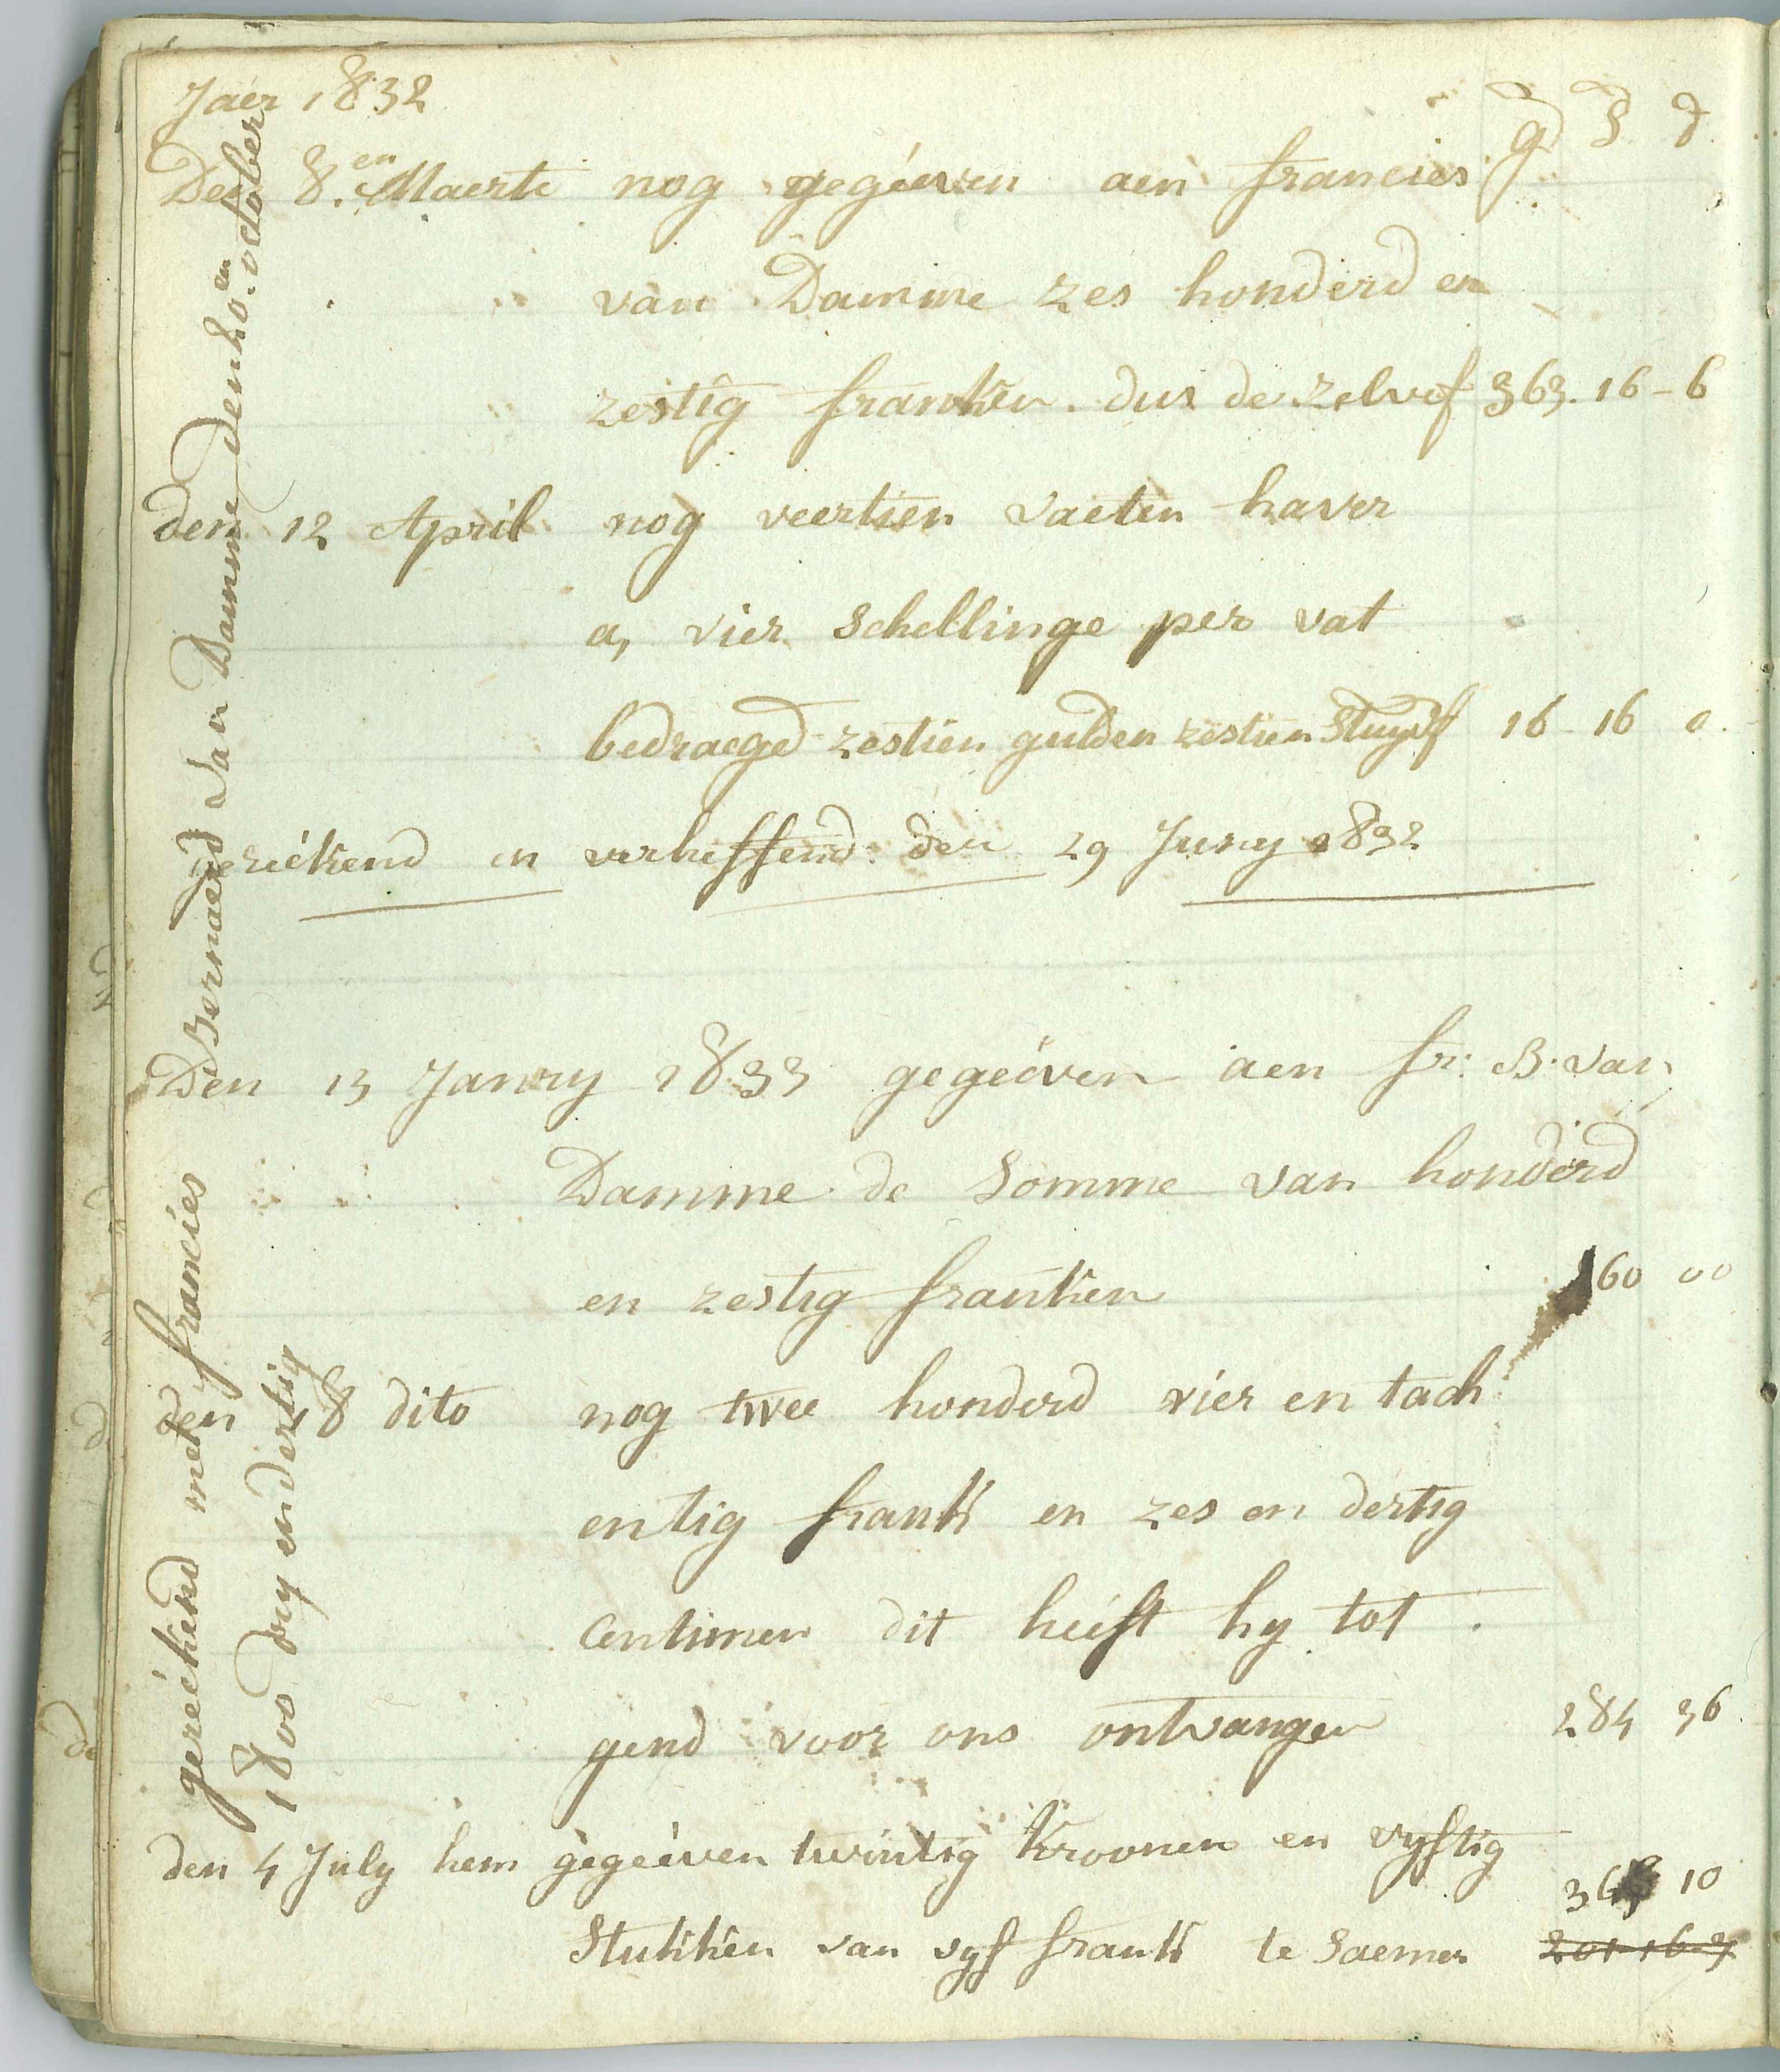 Jaer 1832
g s d
Den 8.en Maerte nog gegéeven aen francies
van Damme zes honderd en
zestig franken. dus de zelve f 363. 16 - 6
den 12 April nog veertien vaeten haver
a, vier schellinge per vat
bedraegd zestien gulden zestien stuyv f 16 - 16 0.
geréékend en verheffend den 29 Juny 1832
Den 13 Janury 1833 gegeéven aen fr: B. van
Damme de Somme van honderd
en zestig franken 160 00
den 18 dito nog twee honderd vier en tach
entig frank en zes en dertig
Centimen dit heeft hy tot
gend voor ons ontvangen 284 36.
den 4 July hem gegeéven twintig kroonen en vyftig
10
stukken van vyf frank te saemen 201-16-7
geréékend met francies Bernaerd van Damme den 20.en october
1800 dry en dertig